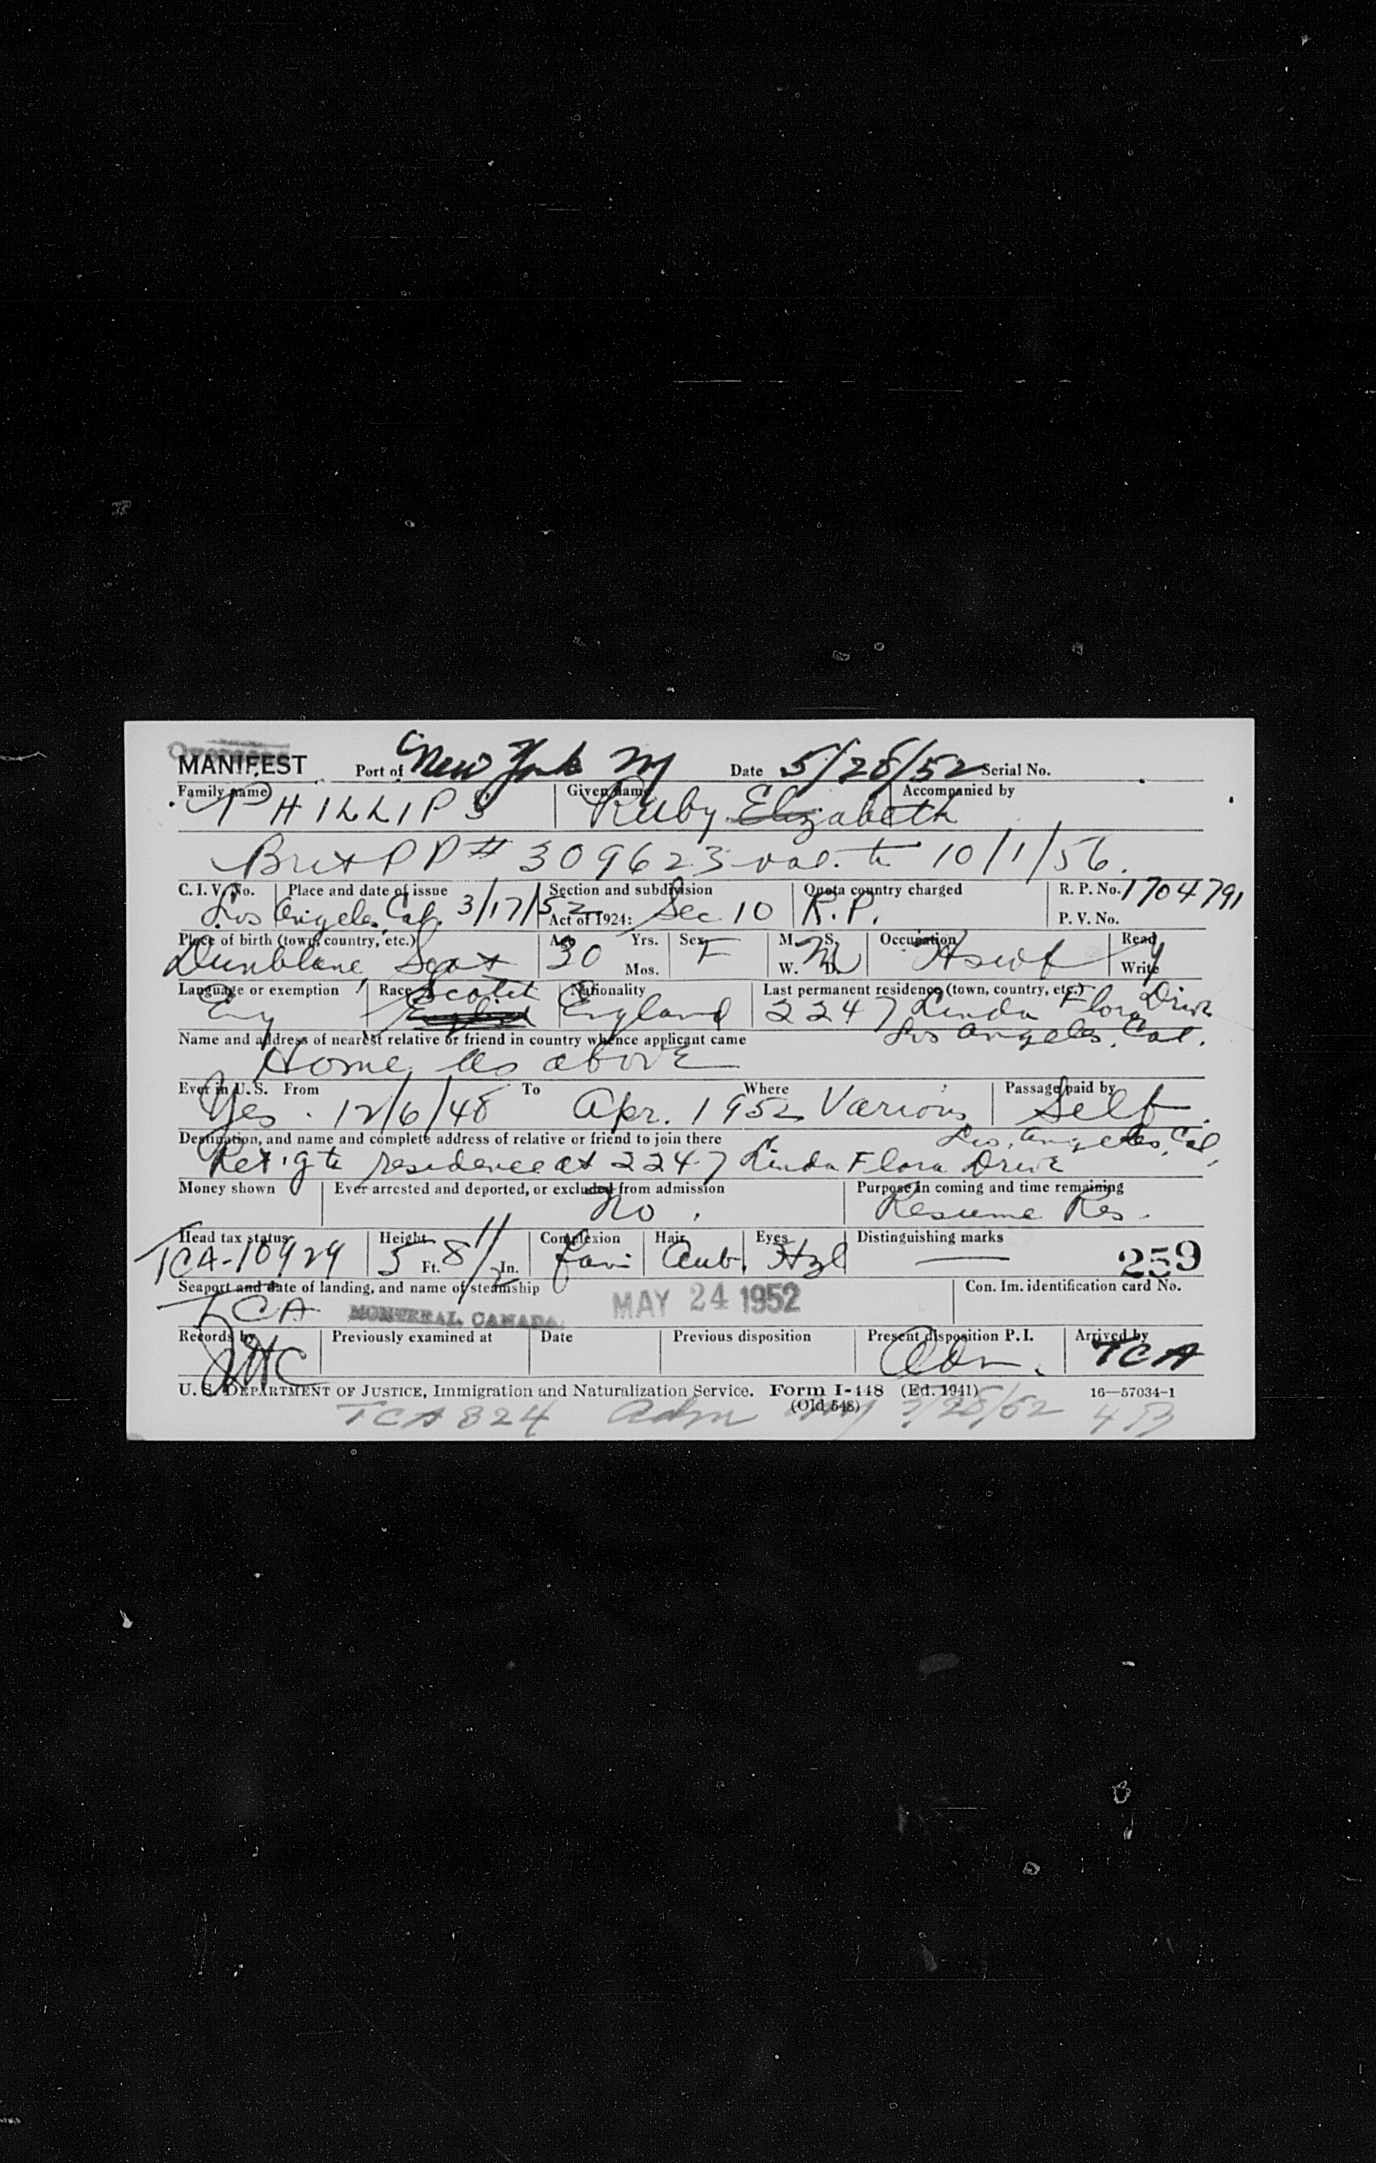 MANIFEST Port of New York NY Date 5/28/52 Serial No.
Family name Given name Accompanied by
PHILLIPS Ruby Elizabeth
Brit PP # 309623 val. to 10/1/56.
C. I. V. No. Place and date of issue Section and subdivision Quota country charged R. P. No. 1704791
Los Angeles, Cal. 3/17/52 Act of 1924: Sec 10 R.P. P. V. No.
Place of birth (town, country, etc.) Age Yrs. Sex M. S. Occupation Read
Dunblane, Scot 30 Mos. F W. M D. Hswf Write y
Language or exemption Race Nationality Last permanent residence (town, country, etc.)
Eng Scotch England 2247 Linda Flora Drive
Los Angeles, Cal.
Name and address of nearest relative or friend in country whence applicant came
Home as above
Ever in U. S. From To Where Passage paid by
Yes. 12/6/48 Apr. 1952 Various Self.
Destination, and name and complete address of relative or friend to join there
Los Angeles, Cal.
Ret'g to residence at 2247 Linda Flora Drive
Money shown Ever arrested and deported, or excluded from admission Purpose in coming and time remaining
No. Resume Res.
Head tax status Height Complexion Hair Eyes Distinguishing marks
TCA-10929 5 Ft. 8 1/2 In. fair Aub. Hzl — 259
Seaport and date of landing, and name of steamship Con. Im. identification card No.
TCA MONTREAL, CANADA. MAY 24 1952
Records by Previously examined at Date Previous disposition Present disposition P. I. Arrived by
Adm. TCA
U. S. DEPARTMENT OF JUSTICE, Immigration and Naturalization Service. Form I-448 (Ed. 1941) 16—57034-1
(Old 548)
TCA 824 Adm 5/28/52